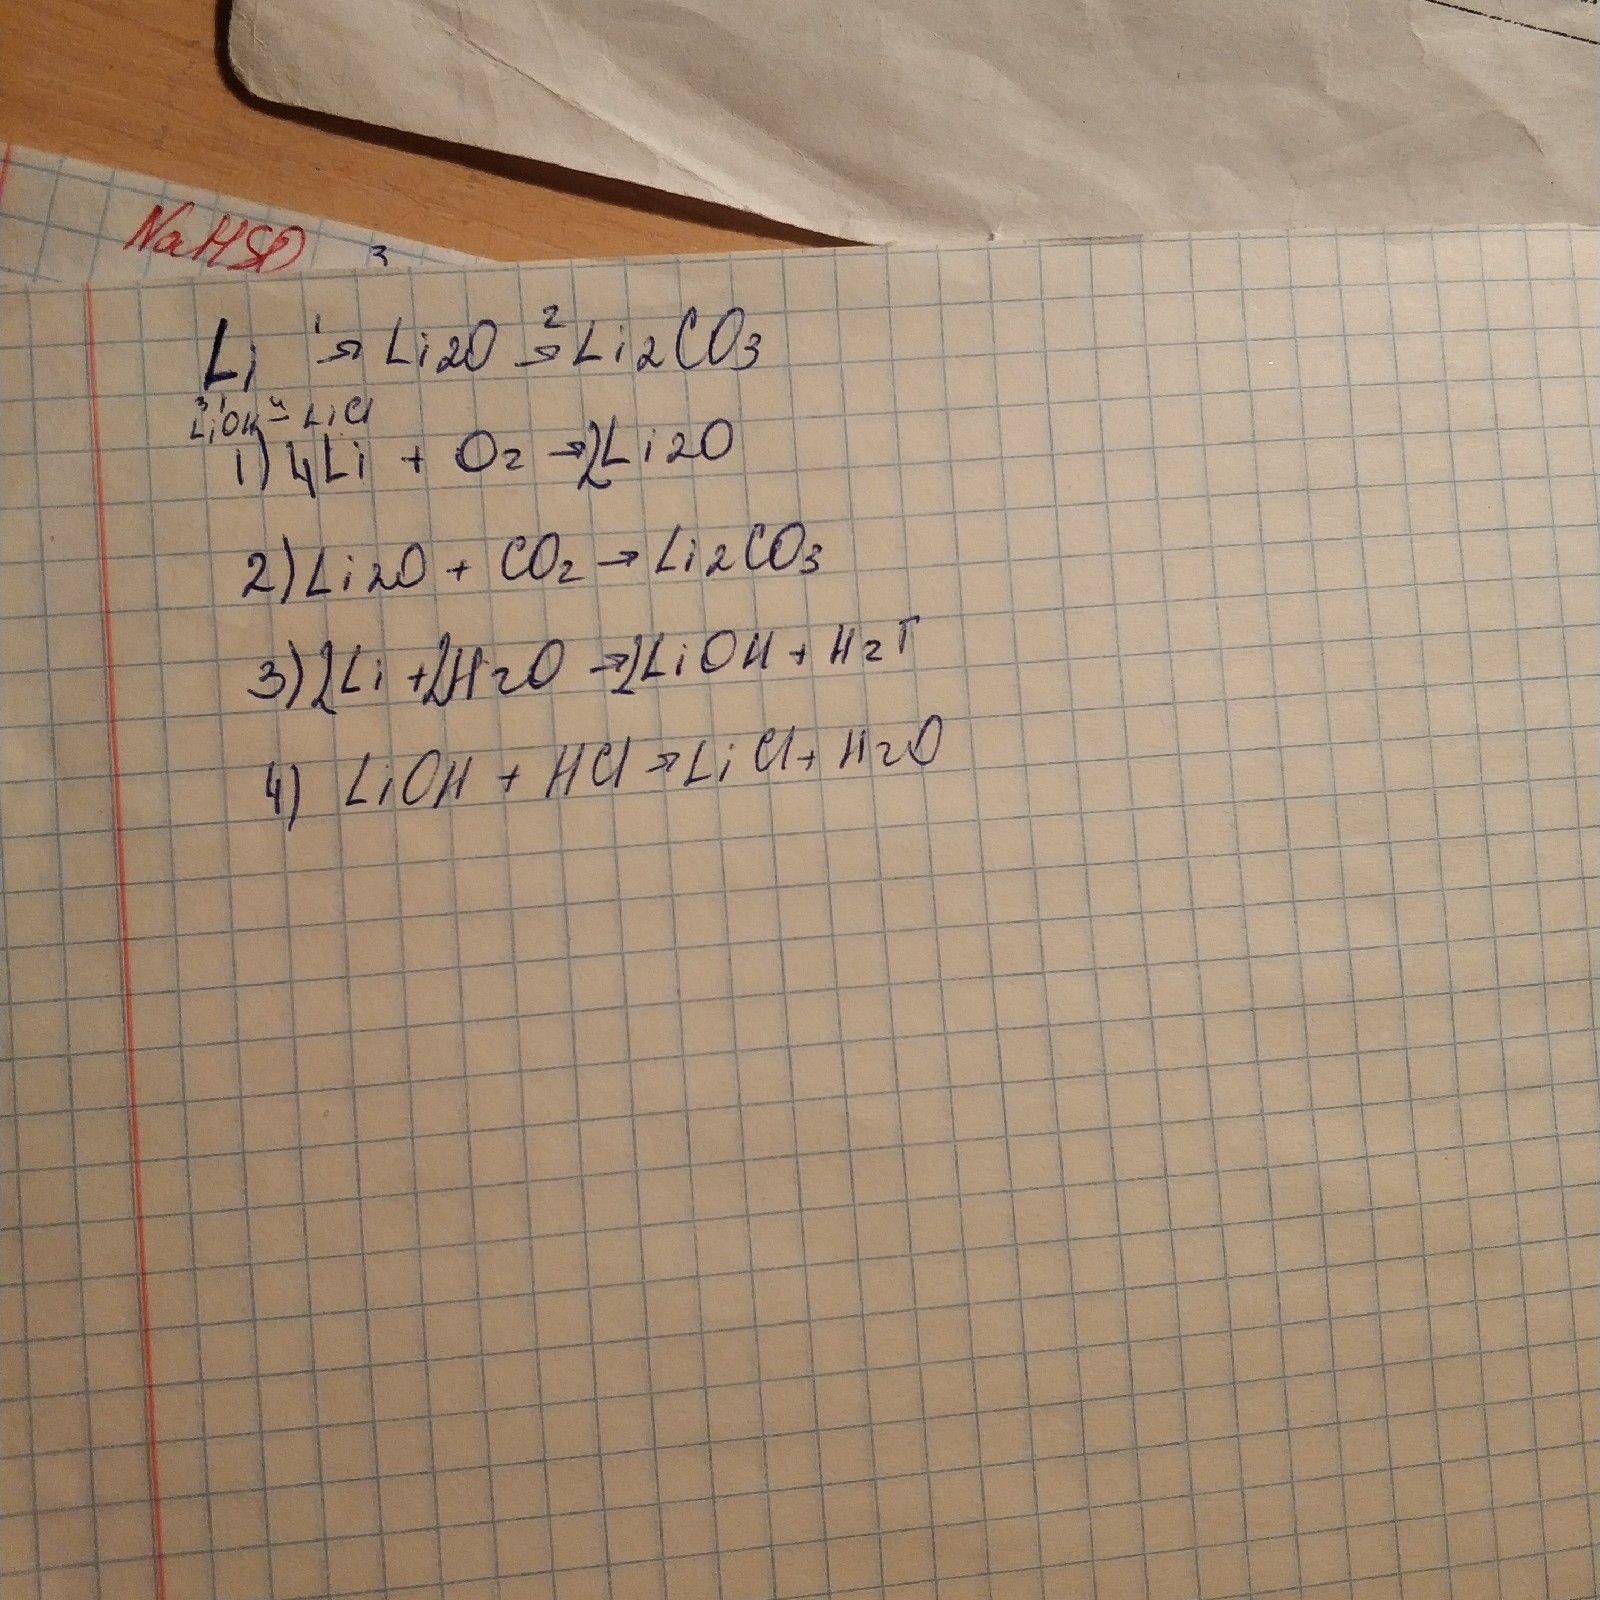 NaHSO 3
Li 1→ Li2O 2→ Li2CO3
3↓ LiOH 4– LiCl
1) 4Li + O2 → 2Li2O
2) Li2O + CO2 → Li2CO3
3) 2Li + 2H2O → 2LiOH + H2↑
4) LiOH + HCl → LiCl + H2O